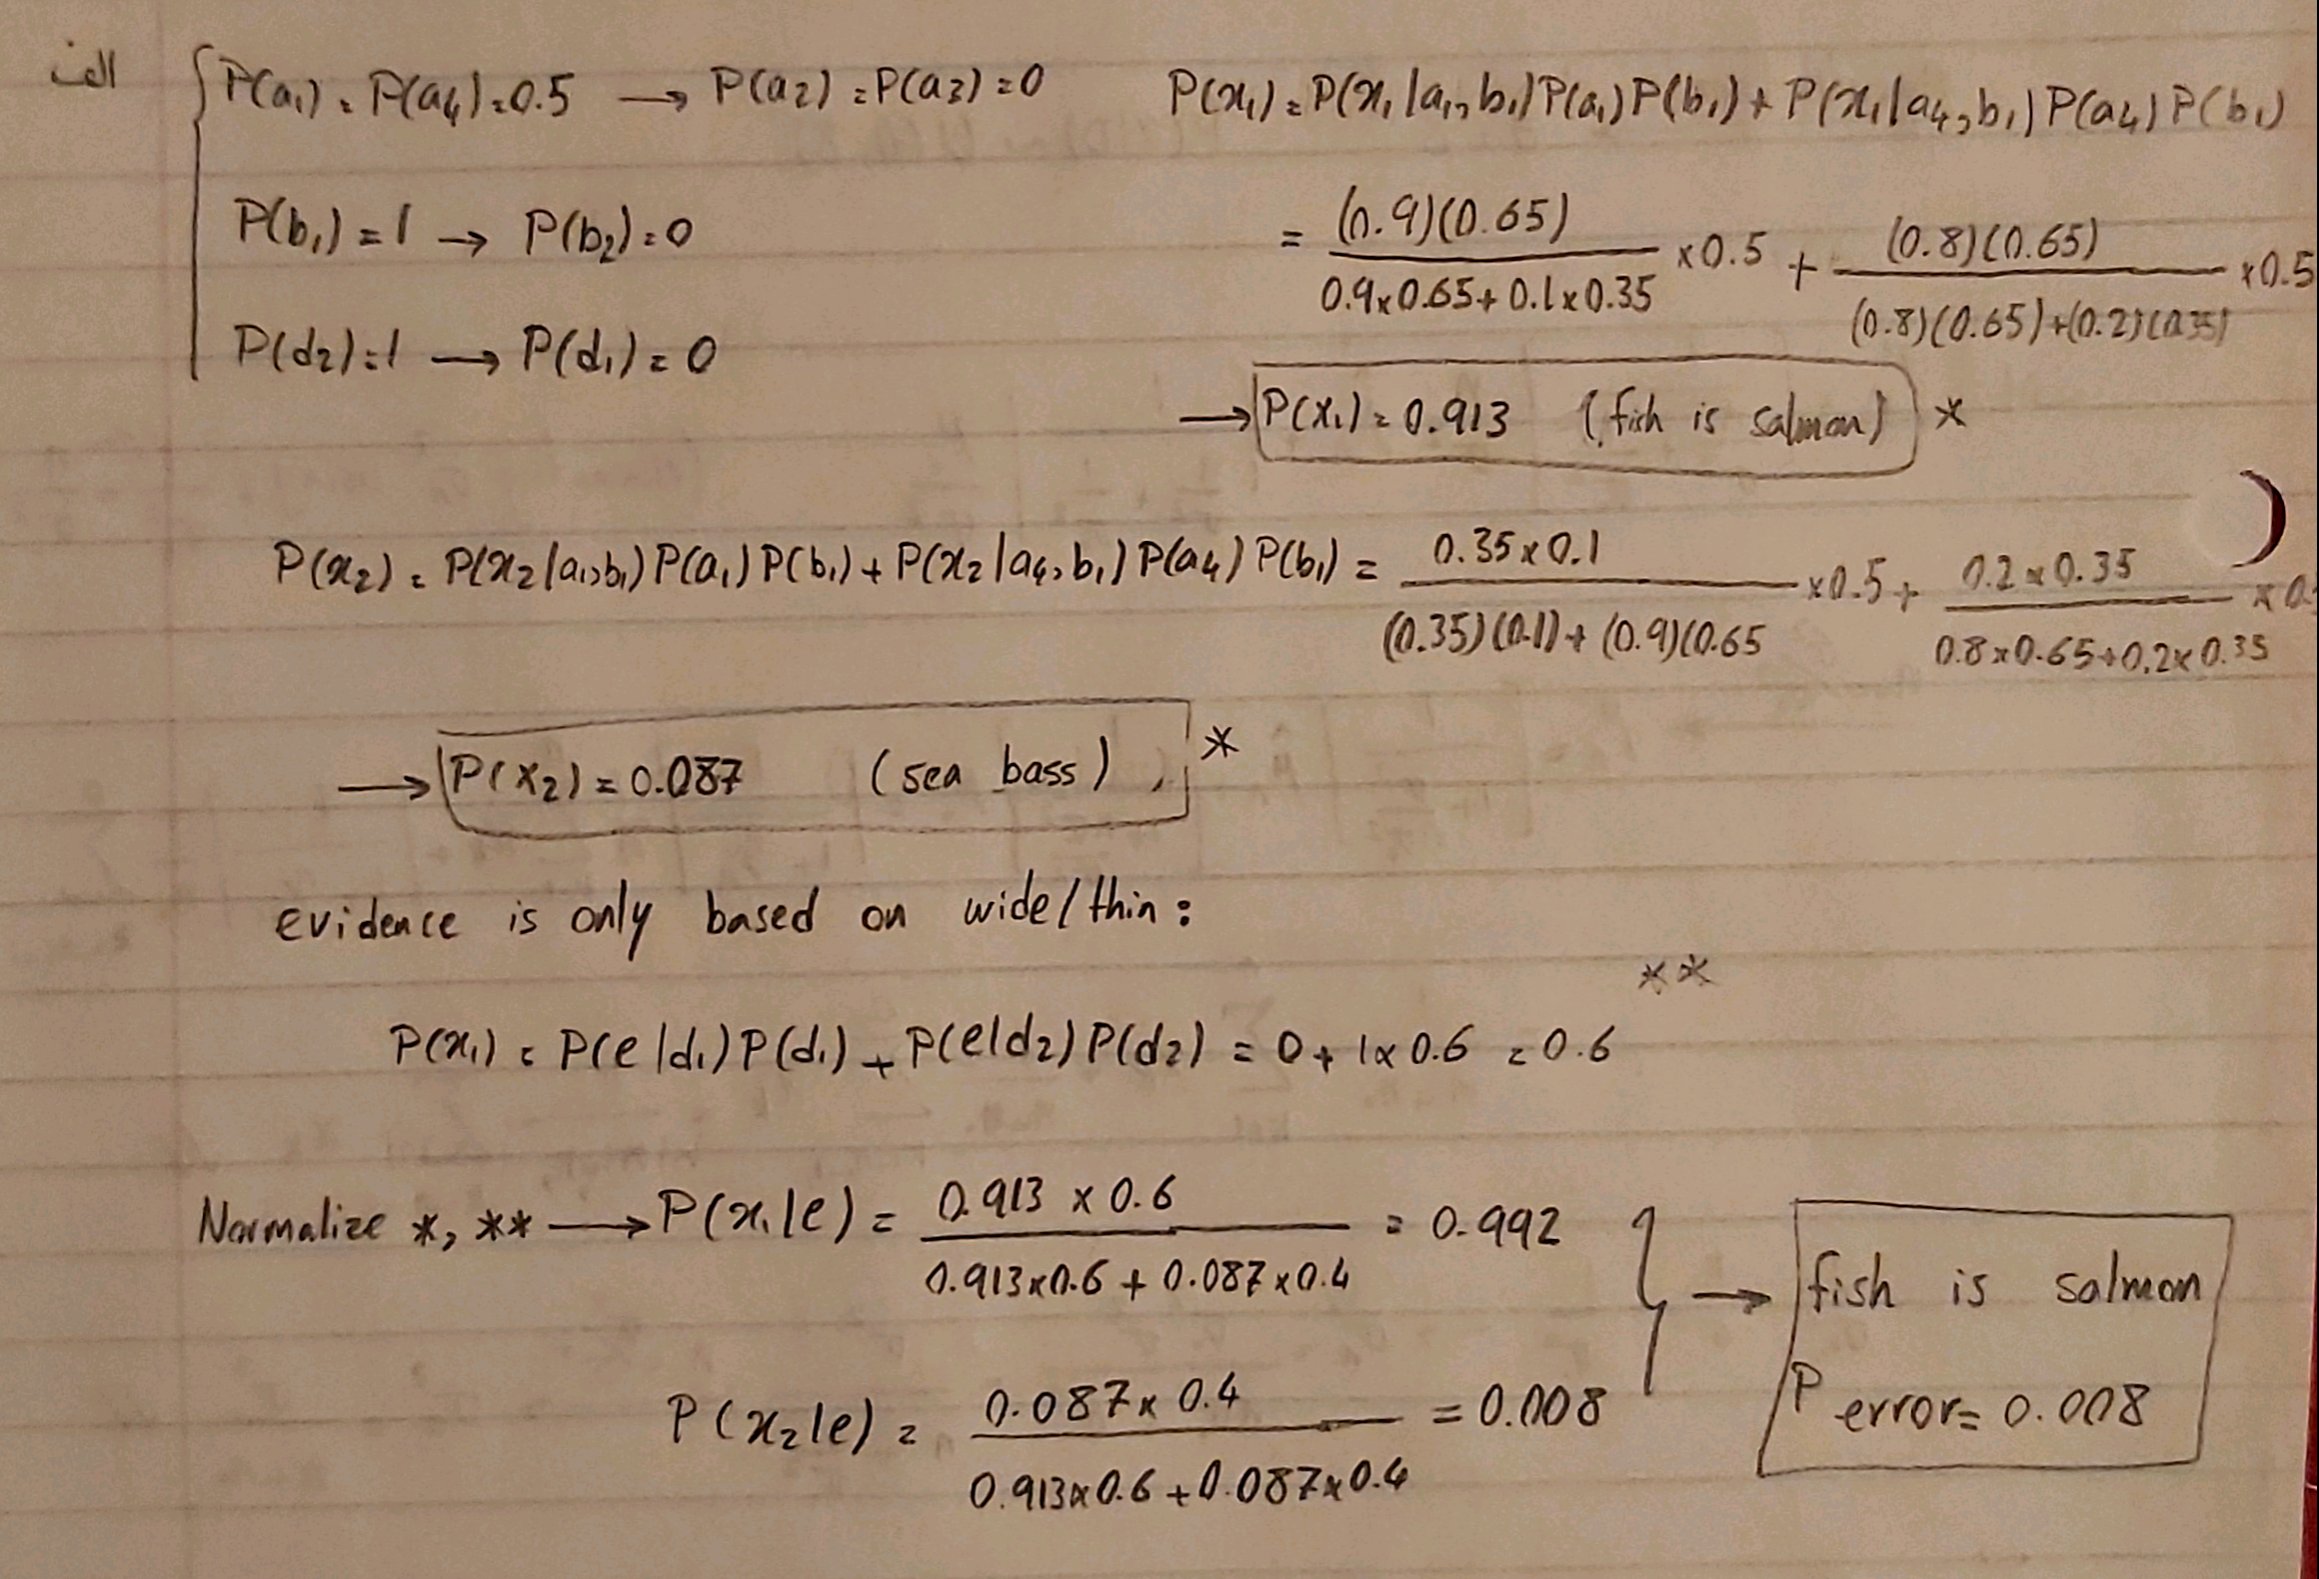 الف
P(a₁) = P(a₄) = 0.5 → P(a₂) = P(a₃) = 0
P(b₁) = 1 → P(b₂) = 0
P(d₂) = 1 → P(d₁) = 0
P(x₁) = P(x₁|a₁,b₁)P(a₁)P(b₁) + P(x₁|a₄,b₁)P(a₄)P(b₁)
= (0.9)(0.65) / 0.9×0.65+0.1×0.35 ×0.5 + (0.8)(0.65) / (0.8)(0.65)+(0.2)(0.35) ×0.5
→ P(x₁) = 0.913 (fish is salmon) *
P(x₂) = P(x₂|a₁,b₁)P(a₁)P(b₁) + P(x₂|a₄,b₁)P(a₄)P(b₁) = 0.35×0.1 / (0.35)(0.1)+(0.9)(0.65 ×0.5 + 0.2×0.35 / 0.8×0.65+0.2×0.35 ×0.
→ P(x₂) = 0.087 (sea bass) *
evidence is only based on wide/thin:
P(x₁) = P(e|d₁)P(d₁) + P(e|d₂)P(d₂) = 0 + 1×0.6 = 0.6 **
Normalize *, ** → P(x₁|e) = 0.913 × 0.6 / 0.913×0.6 + 0.087×0.4 = 0.992
P(x₂|e) = 0.087×0.4 / 0.913×0.6+0.087×0.4 = 0.008
→ fish is salmon
P error= 0.008